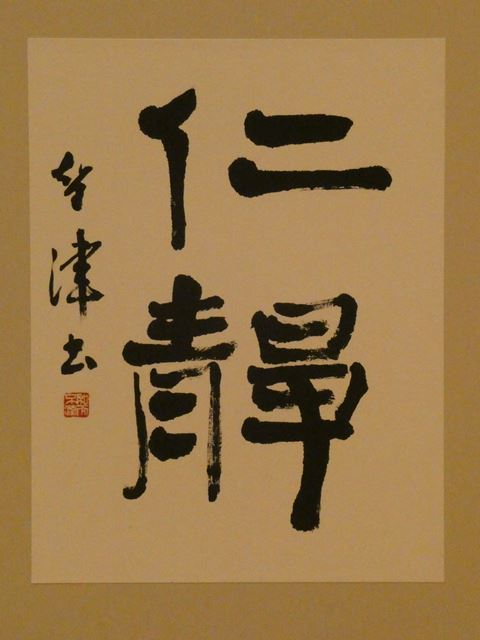 仁靜
津书